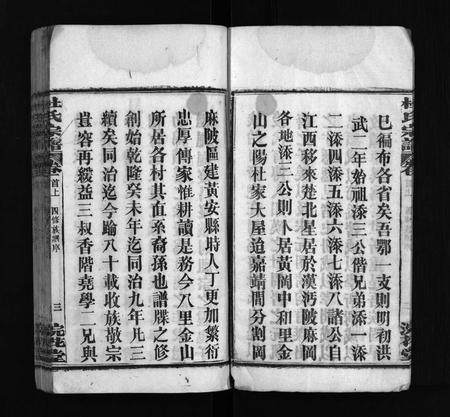 巳徧布各省矣吾鄂一支則明初洪
武二年始祖添三公偕兄弟添一添
二添四添五添六添七添八諸公自
江西移來楚北星居於漢沔陂麻岡
各地添二公則卜居黃岡中和里金
山之陽杜家大屋迨嘉靖間分割岡
麻陂區建黃安縣時人丁更加繁衍
忠厚傳家惟耕讀是務今八里金山
所居各村其直系裔孫也譜牒之修
創始乾隆癸未年迄同治九年凡三
續矣同治迄今踰八十載收族敬宗
豈容再緩益三叔香階堯學二兄與
杜氏宗譜
卷首上
四修族譜序
三